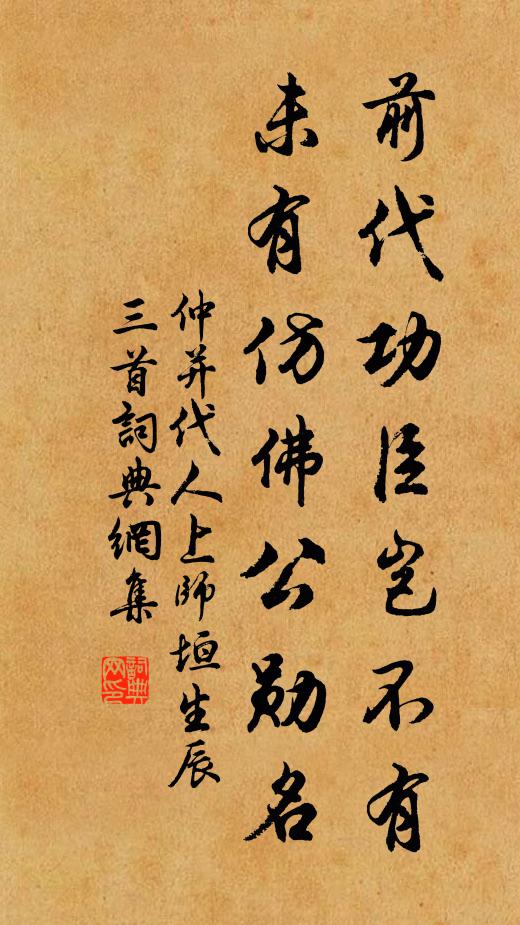 前代功臣岂不有
未有仿佛公勋名
仲并代人上師垣生辰
三首詞典網集
詞典网印